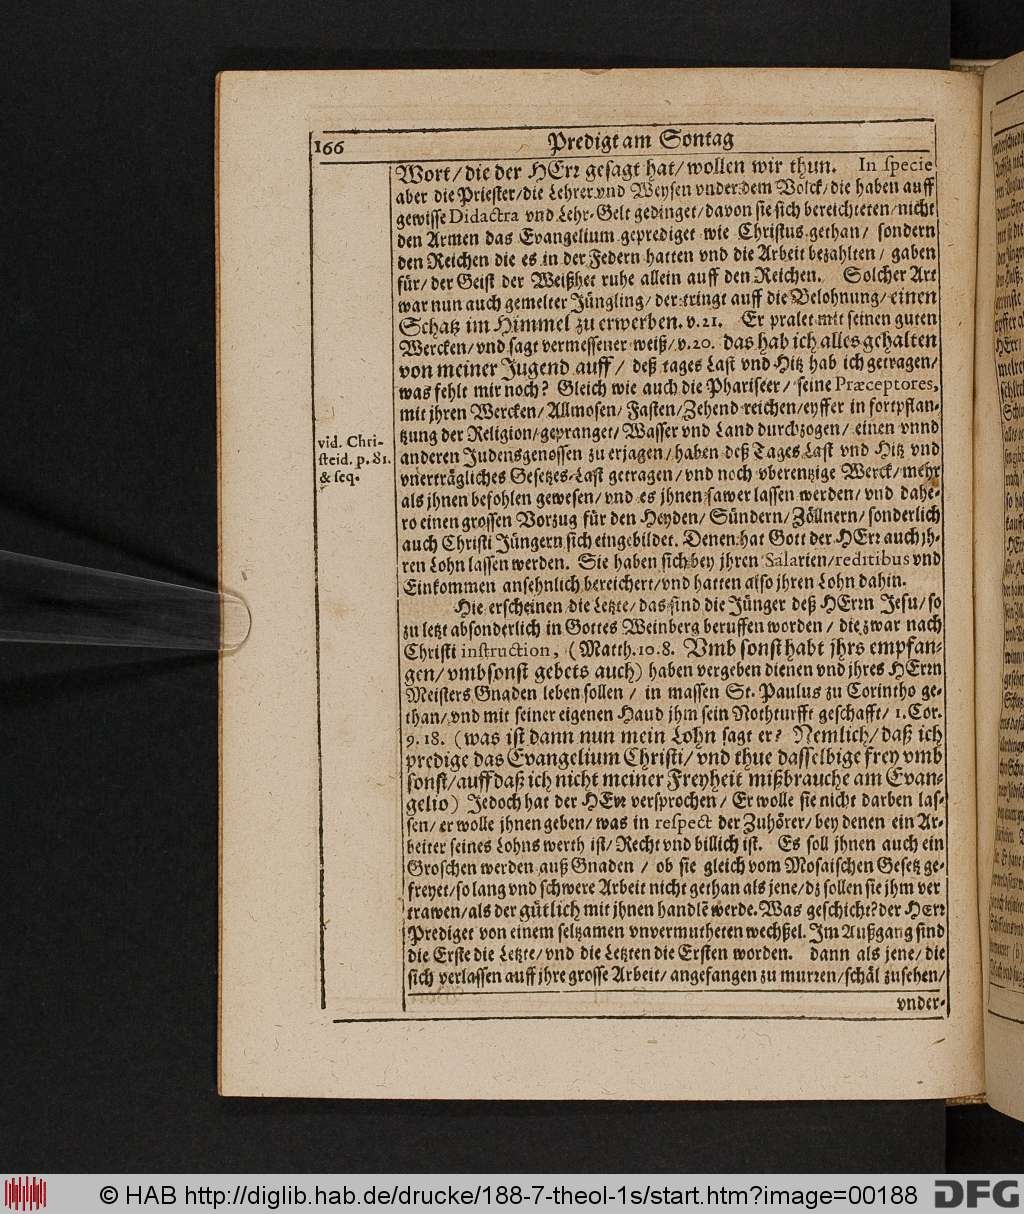 166
Predigt am Sontag
Wort/ die der HErr gesagt hat/ wollen wir thun. In specie
aber die Priester/ die Lehrer vnd Weysen vnder dem Volck/ die haben auff
gewisse Didactra vnd Lehr-Gelt gedinget/ davon sie sich bereichteten/ nicht
den Armen das Evangelium geprediget wie Christus gethan/ sondern
den Reichen die es in der Federn hatten vnd die Arbeit bezahlten/ gaben
für/ der Geist der Weißhet ruhe allein auff den Reichen. Solcher Art
war nun auch gemelter Jüngling/ der tringt auff die Belohnung/ einen
Schatz im Himmel zu erwerben. v. 21. Er pralet mit seinen guten
Wercken/ vnd sagt vermessener weiß/ v. 20. das hab ich alles gehalten
von meiner Jugend auff/ deß tages Last vnd Hitz hab ich getragen/
was fehlt mir noch? Gleich wie auch die Phariseer/ seine Præceptores,
mit jhren Wercken/ Allmosen/ Fasten/ Zehend reichen/ eyffer in fortpflan-
tzung der Religion/ gepranget/ Wasser vnd Land durchzogen/ einen vnnd
vid. Chri-
steid. p. 81.
& seq.
anderen Judensgenossen zu erjagen/ haben deß Tages Last vnd Hitz vnd
vnerträgliches Gesetzes-Last getragen/ vnd noch vberentzige Werck/ mehr
als jhnen befohlen gewesen/ vnd es jhnen sawer lassen werden/ vnd dahe-
ro einen grossen Vorzug für den Heyden/ Sündern/ Zöllnern/ sonderlich
auch Christi Jüngern sich eingebildet. Denen hat Gott der HErr auch jh-
ren Lohn lassen werden. Sie haben sich bey jhren Salarien/ reditibus vnd
Einkommen ansehnlich bereichert/ vnd hatten also jhren Lohn dahin.
Hie erscheinen die Letzte/ das sind die Jünger deß HErrn Jesu/ so
zu letzt absonderlich in Gottes Weinberg beruffen worden/ die zwar nach
Christi instruction, (Matth. 10. 8. Vmb sonst habt jhrs empfan-
gen/ vmbsonst gebets auch) haben vergeben dienen vnd jhres HErrn
Meisters Gnaden leben sollen/ in massen St. Paulus zu Corintho ge-
than/ vnd mit seiner eigenen Haud jhm sein Nothturfft geschafft/ 1. Cor.
9. 18. (was ist dann nun mein Lohn sagt er? Nemlich/ daß ich
predige das Evangelium Christi/ vnd thue dasselbige frey vmb
sonst/ auff daß ich nicht meiner Freyheit mißbrauche am Evan-
gelio) Jedoch hat der HErr versprochen/ Er wolle sie nicht darben las-
sen/ er wolle jhnen geben/ was in respect der Zuhörer/ bey denen ein Ar-
beiter seines Lohns werth ist/ Recht vnd billich ist. Es soll jhnen auch ein
Groschen werden auß Gnaden/ ob sie gleich vom Mosaischen Gesetz ge-
freyet/ so lang vnd schwere Arbeit nicht gethan als jene/ dz sollen sie jhm ver
trawen/ als der gütlich mit jhnen handlẽ werde. Was geschicht? der HErr
Prediget von einem seltzamen vnvermutheten wechßel. Im Außgang sind
die Erste die Letzte/ vnd die Letzten die Ersten worden. dann als jene/ die
sich verlassen auff jhre grosse Arbeit/ angefangen zu murren/ schäl zusehen/
vnder-
© HAB http://diglib.hab.de/drucke/188-7-theol-1s/start.htm?image=00188
DFG